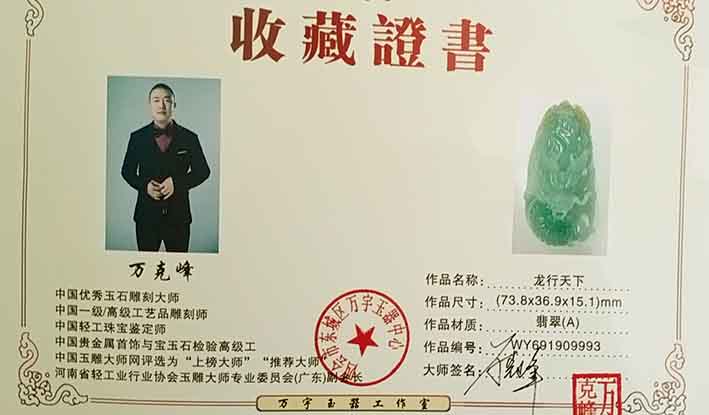 收藏證書
万克峰
中国优秀玉石雕刻大师
中国一级/高级工艺品雕刻师
中国轻工珠宝鉴定师
中国贵金属首饰与宝玉石检验高级工
中国玉雕大师网评选为“上榜大师”“推荐大师”
河南省轻工业行业协会玉雕大师专业委员会(广东)副会长
作品名称: 龙行天下
作品尺寸: (73.8x36.9x15.1)mm
作品材质: 翡翠(A)
作品编号: WY691909993
大师签名:
四会市东城区万宇玉器中心
万克峰
万宇玉器工作室